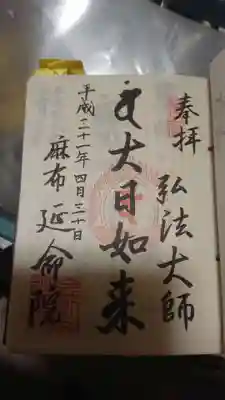 奉拝
弘法大師
大日如来
平成二十一年四月二十日
麻布 延命院